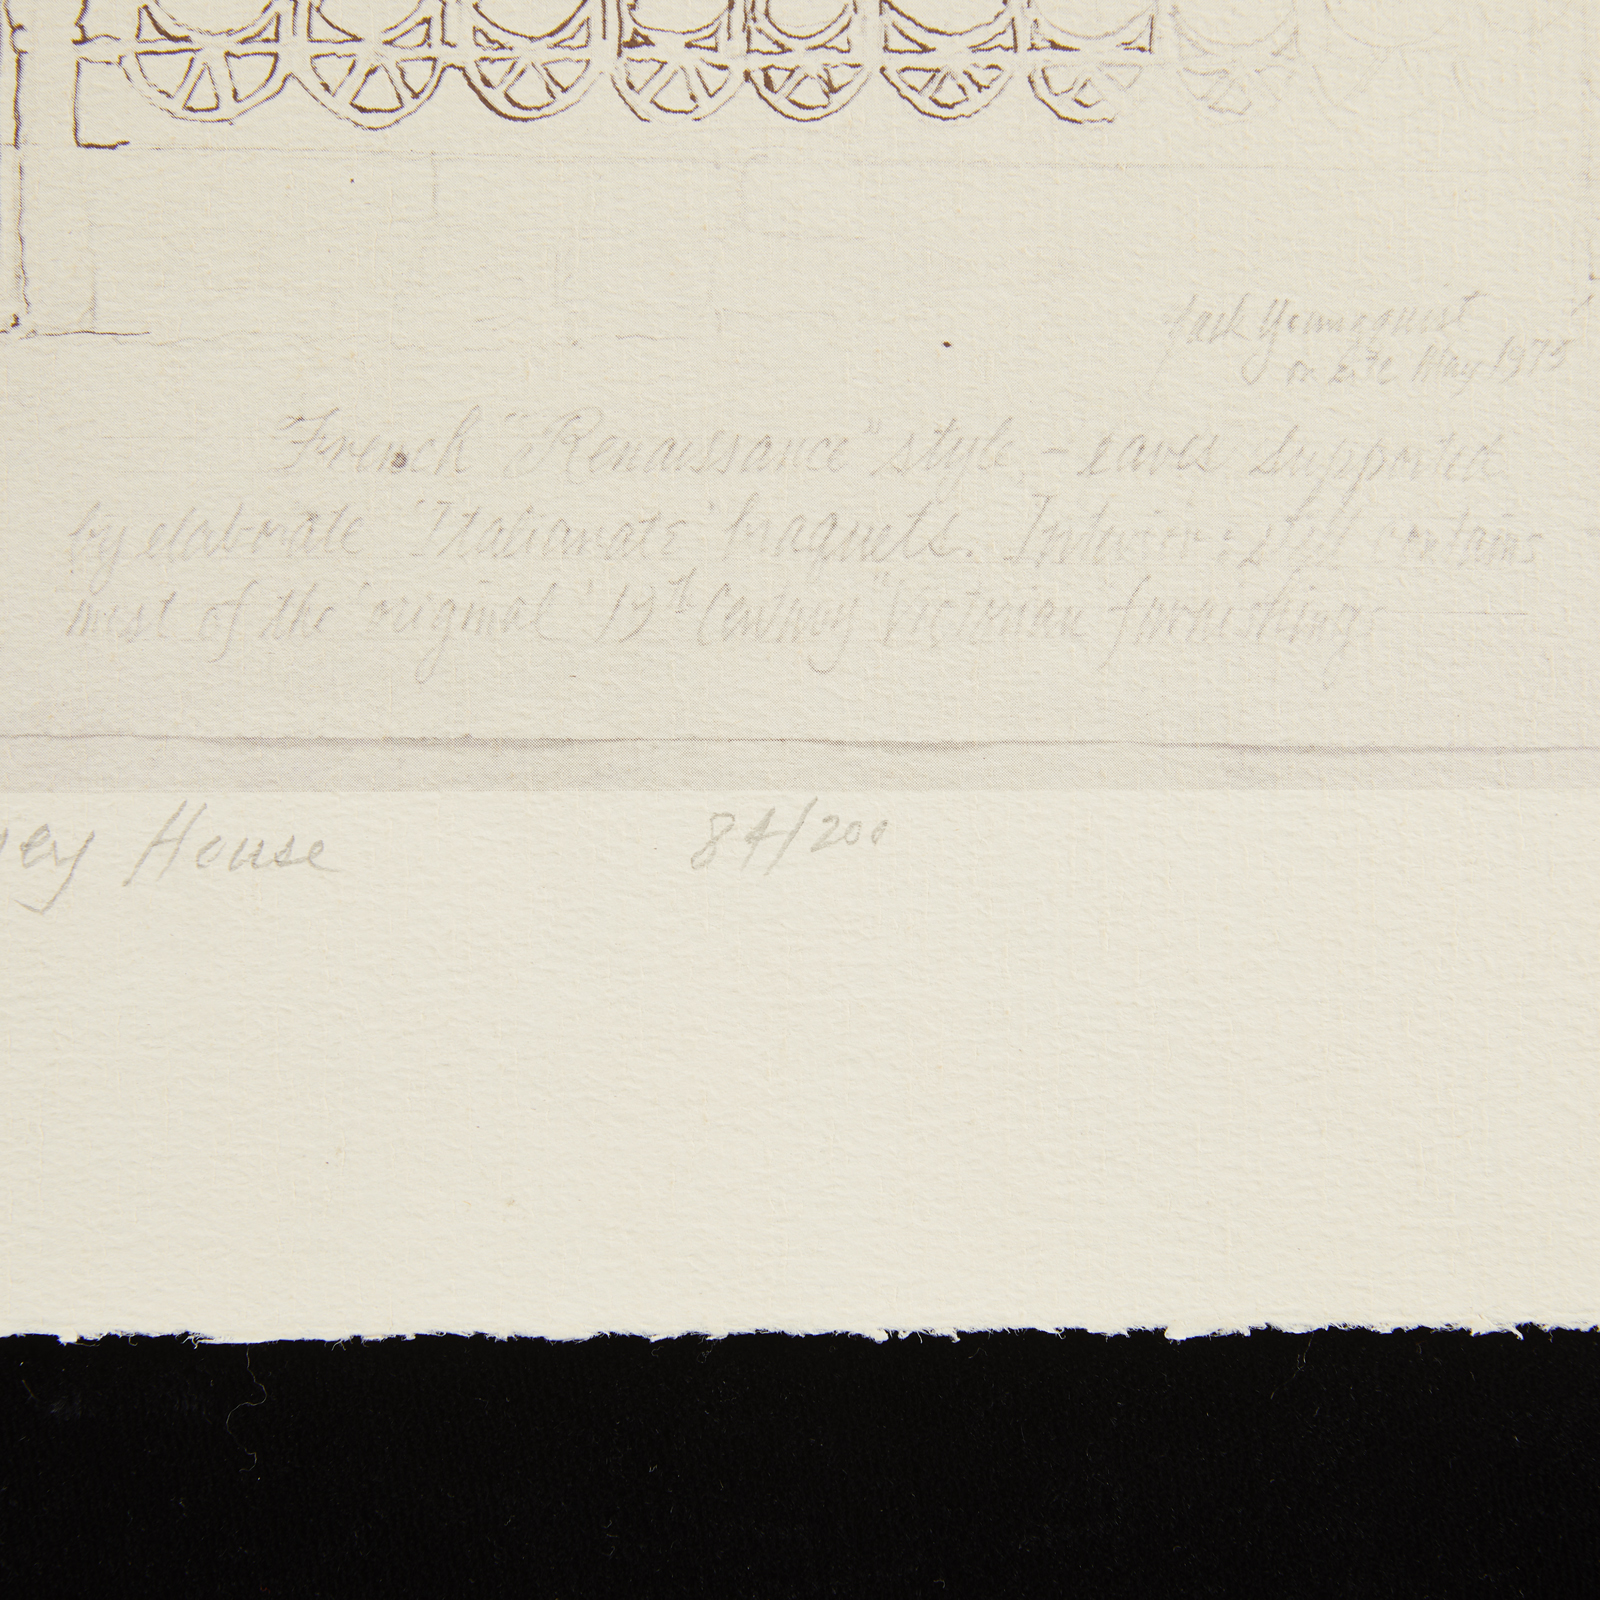 Jack Youngquist
on site May 1975
French "Renaissance" style - eaves supported
by elaborate 'Italianate' braquets. Interior: still contains
most of the 'original' 19th Century "Victorian furnishing
ey House 84/200